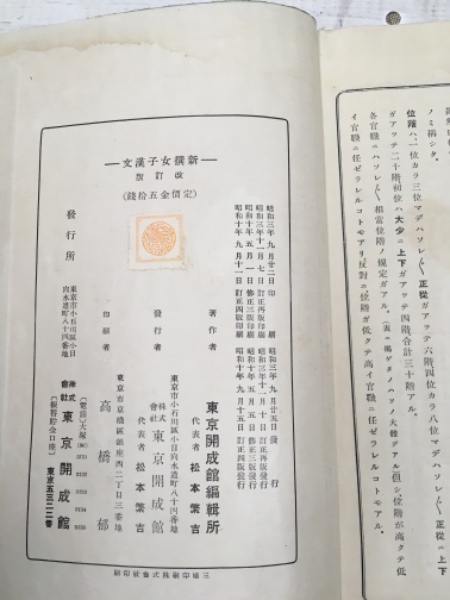 ノミ稱シタ。
位階ハ、一位カラ三位マデハソレ〴〵正從ガアツテ六階四位カラ八位マデハソレ〴〵正從ニ上下
ガアツテ二十階初位ハ大少ニ上下ガアツテ四階合計三十階アル。
各官職ニハソレ〴〵相當位階ノ規定ガアル。
イ官職ニ任ゼラレルコトモアル。
昭和三年九月廿二日印刷 昭和三年九月廿五日發行
昭和三年十一月七日訂正再版印刷 昭和三年十一月十日訂正再版發行
昭和十年五月一日修正三版印刷 昭和十年五月五日修正三版發行
昭和十年九月十一日訂正四版印刷 昭和十年九月十五日訂正四版發行
新撰女子漢文
改訂版
(定價金五拾錢)
著作者 東京開成館編輯所
代表者 松本繁吉
東京市小石川區小日向水道町八十四番地
發行者 株式會社 東京開成館
代表者 松本繁吉
東京市京橋區銀座西二丁目三番地
印刷者 高橋郁
發行所
東京市小石川區小日
向水道町八十四番地
株式會社 東京開成館
(振替貯金口座) 東京五三二二番
三協印刷株式會社印刷